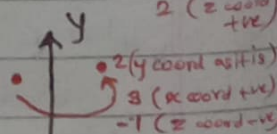 2 (z coord
+ve)
y
2 (y coord as it is)
3 (x coord +ve)
-1 (z coord -ve